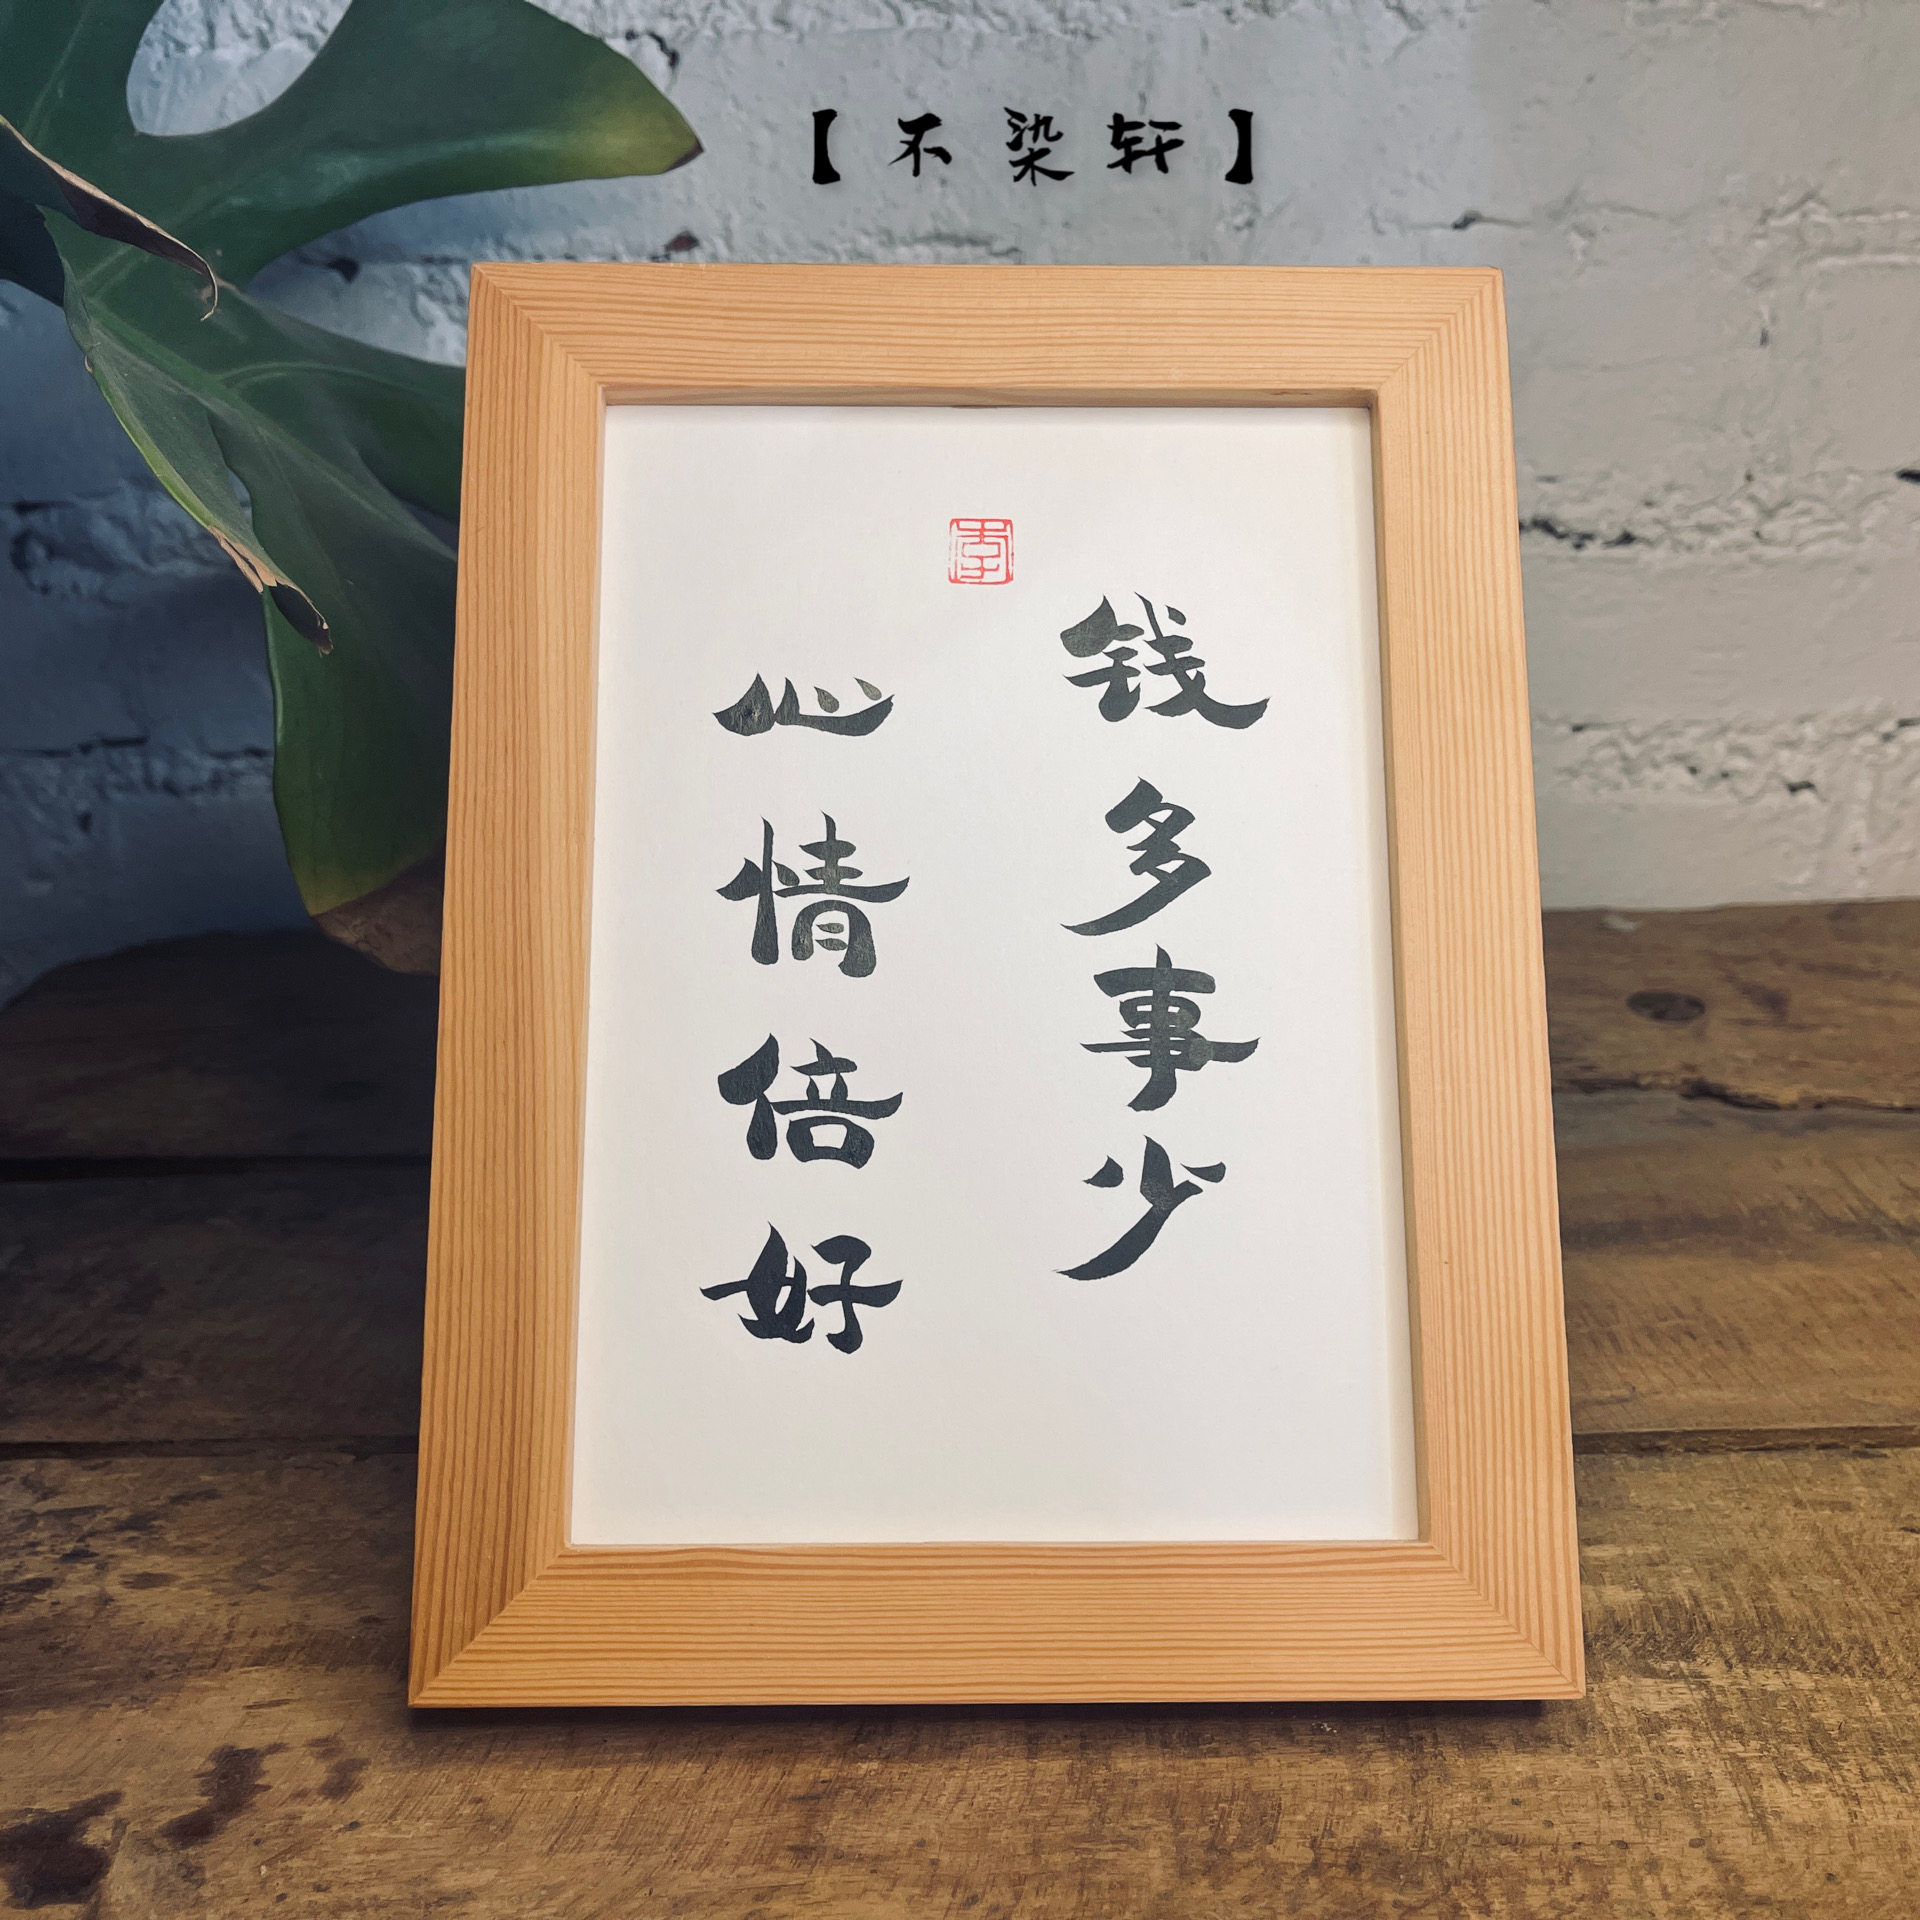 【不染轩】
钱多事少
心情倍好